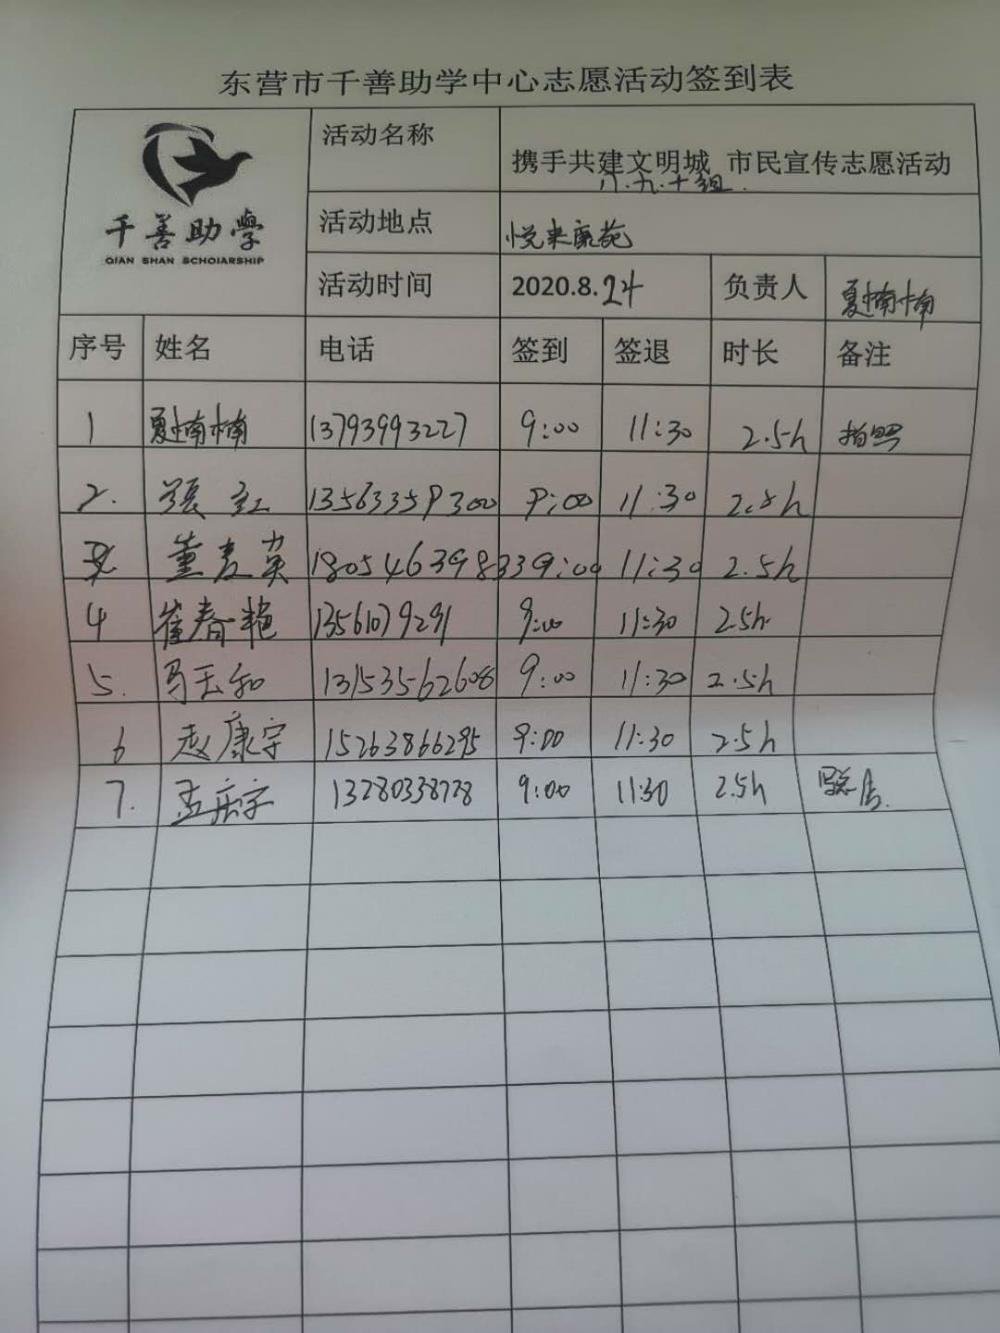 东营市千善助学中心志愿活动签到表
千善助學
QIAN SHAN SCHOIARSHIP
活动名称 携手共建文明城 市民宣传志愿活动
八.九.十组.
活动地点 悦来康苑
活动时间 2020.8.24 负责人 夏楠楠
序号 姓名 电话 签到 签退 时长 备注
1 夏楠楠 13793993227 9:00 11:30 2.5h 拍照
2. 张红 13563359300 9:00 11:30 2.5h
3 董麦英 18054639833 9:00 11:30 2.5h
4 崔春艳 13561079291 9:00 11:30 2.5h
5. 马玉和 13153562608 9:00 11:30 2.5h
6 赵康宇 15263866295 9:00 11:30 2.5h
7. 孟庆宇 13280338728 9:00 11:30 2.5h